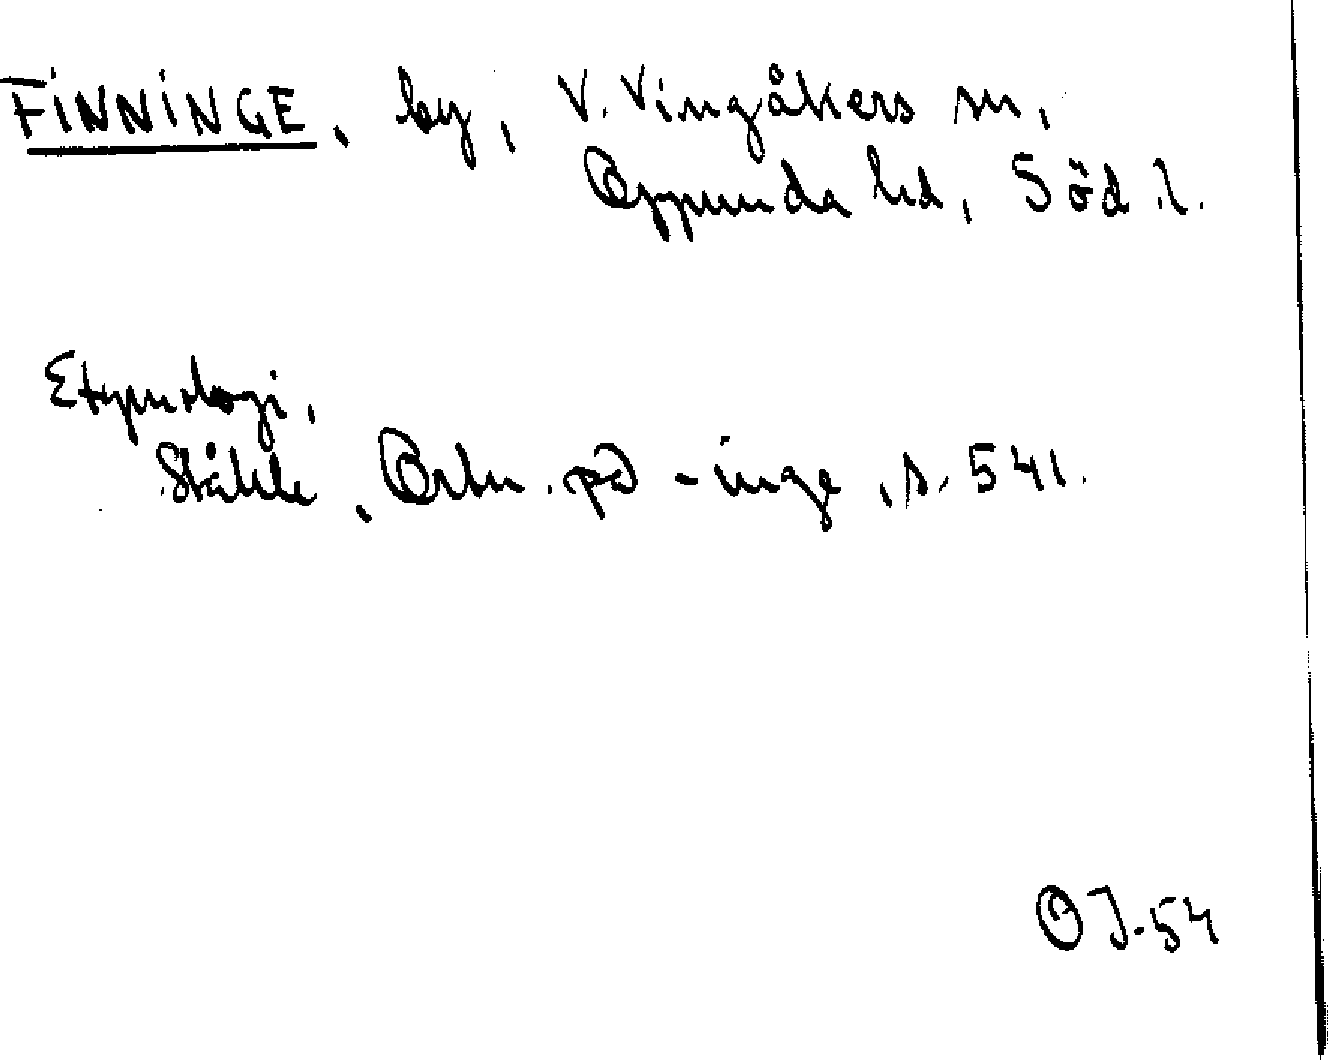 FINNINGE, by, V. Vingåkers sn,
Oppunda hd, Söd.l.
Etymologi,
Ståhle, Ortn. på -inge, s. 541.
OJ.54